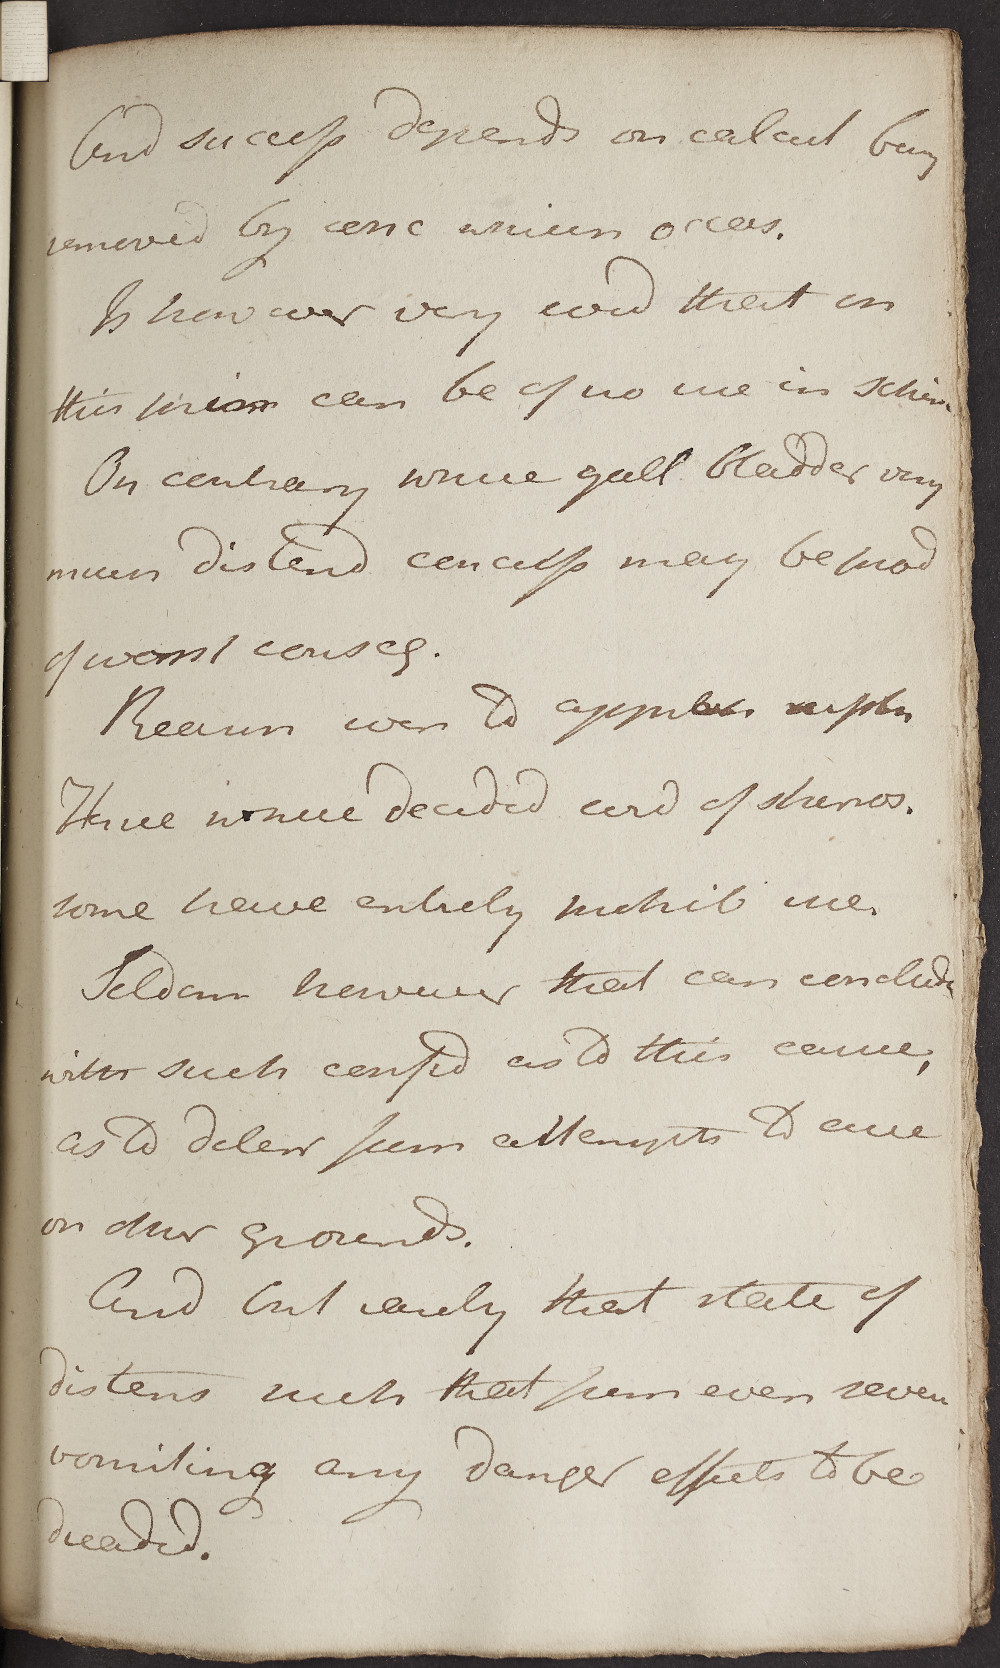 And success depends on calcul being
removed by conc which occas.
Is however very evid that on
this princ can be of no use in Schirr.
On contrary where gall bladder very
much distend concuss may be prod
of worst conseq.
Reason was to apprehen
Hence where decided evid of
some have entirely prohib use.
Seldom however that can conclude
with such confid as to this cause,
as to deter from attempts to cure
on other grounds.
And but rarely that state of
distens such that from even severe
vomiting any danger effects to be
dreaded.